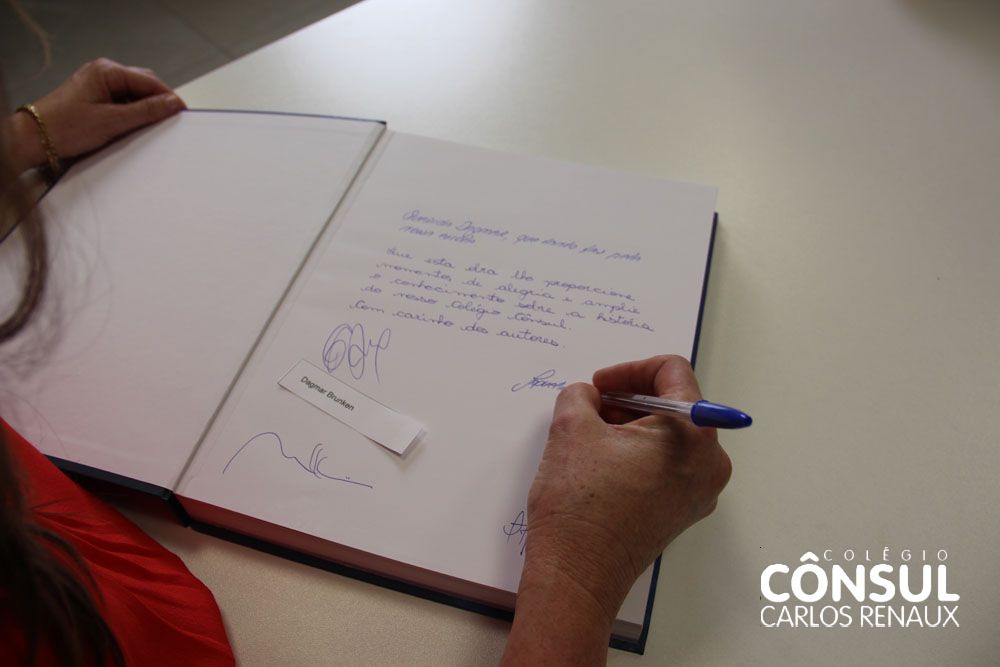 Que esta obra lhe proporcione
momentos de alegria e amplie
o conhecimento sobre a história
do nosso Colégio Cônsul.
Com carinho dos autores.
Dagmar Brunken
COLÉGIO
CÔNSUL
CARLOS RENAUX